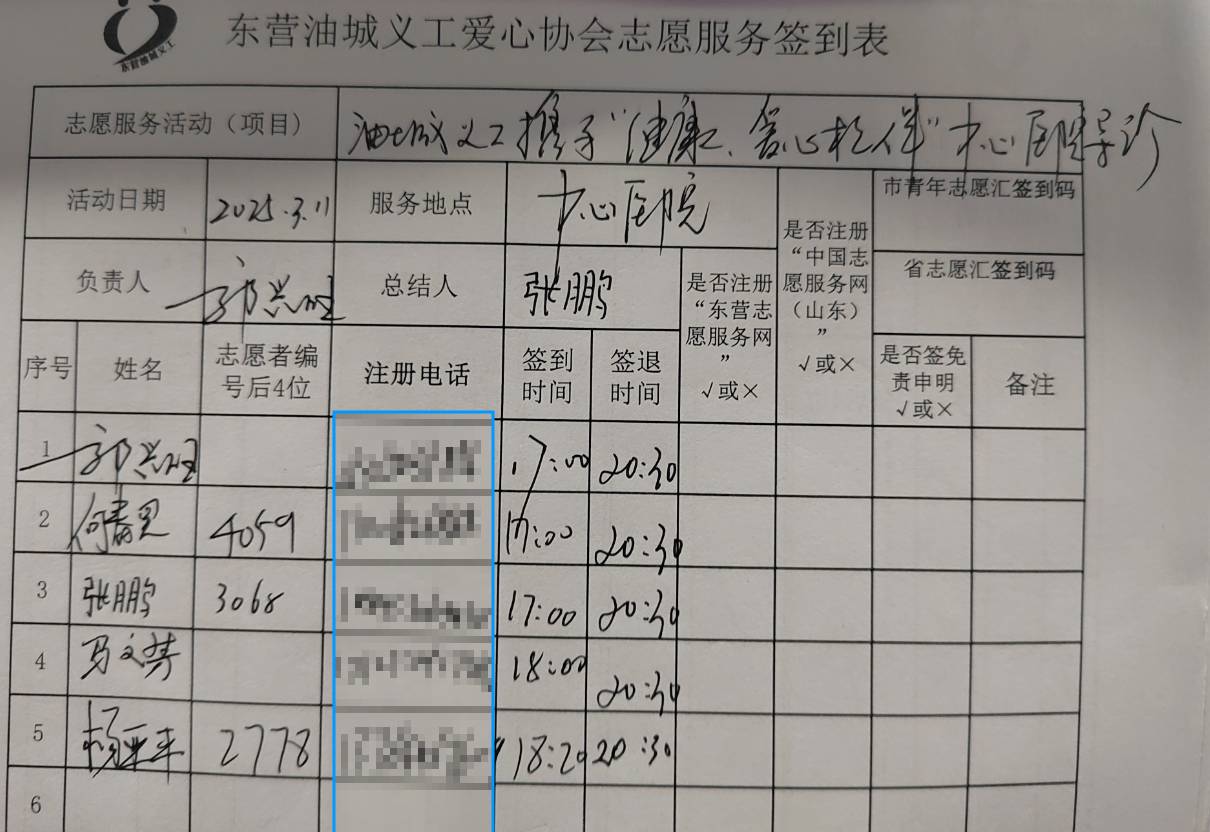 东营油城义工
东营油城义工爱心协会志愿服务签到表
志愿服务活动（项目） 油城义工携手“健康、爱心相伴”中心医院导诊
活动日期 2025.3.11 服务地点 中心医院 是否注册“中国志愿服务网（山东）” √或× 市青年志愿汇签到码
负责人 郭兴旺 总结人 张鹏 是否注册“东营志愿服务网” √或× 省志愿汇签到码
序号 姓名 志愿者编号后4位 注册电话 签到时间 签退时间 是否签免责申明 √或× 备注
1 郭兴旺 17:00 20:30
2 何春里 4059 17:00 20:30
3 张鹏 3068 17:00 20:30
4 马文梦 18:00 20:30
5 杨亚平 2778 18:20 20:30
6